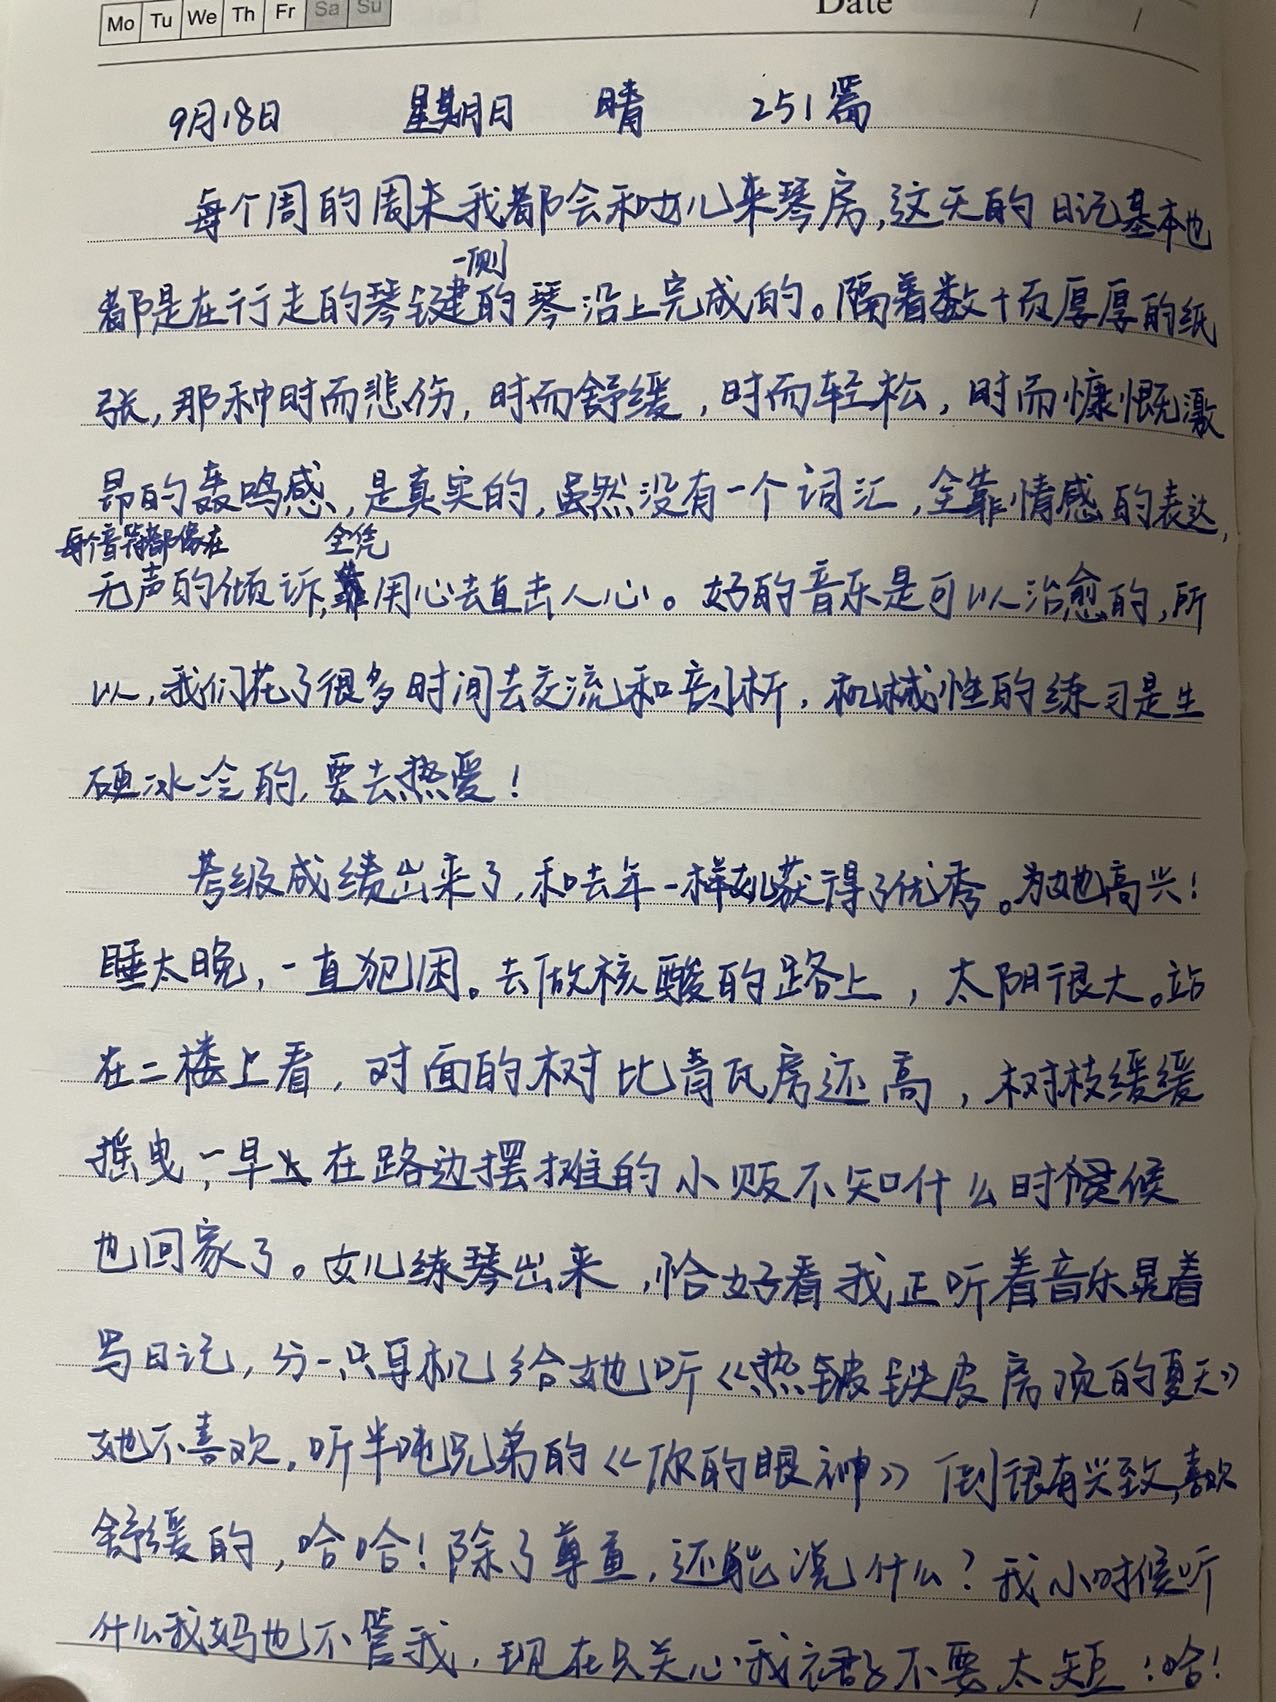 Mo Tu We Th Fr Sa Su
Date / /
9月18日 星期日 晴 251篇
每个周的周末我都会和女儿来琴房,这天的日记基本也
一侧
都是在行走的琴键的琴沿上完成的。隔着数十页厚厚的纸
张,那种时而悲伤,时而舒缓,时而轻松,时而慷慨激
昂的轰鸣感,是真实的,虽然没有一个词汇,全靠情感的表达,
每个音符都像在 全凭
无声的倾诉,用心去直击人心。好的音乐是可以治愈的,所
以,我们花了很多时间去交流和剖析,机械性的练习是生
硬冰冷的,要去热爱!
考级成绩出来了,和去年一样女儿获得了优秀。为她高兴!
睡太晚,一直犯困。去做核酸的路上,太阳很大。站
在二楼上看,对面的树比青瓦房还高,树枝缓缓
摇曳,一早上在路边摆摊的小贩不知什么时候
也回家了。女儿练琴出来,恰好看我正听着音乐晃着
写日记,分一只耳机给她听《热铁皮房顶的夏天》
她不喜欢,听半吨兄弟的《你的眼神》倒很有兴致,喜欢
舒缓的,哈哈!除了尊重,还能说什么?我小时候听
什么我妈也不管我,现在只关心我裙子不要太短!哈!